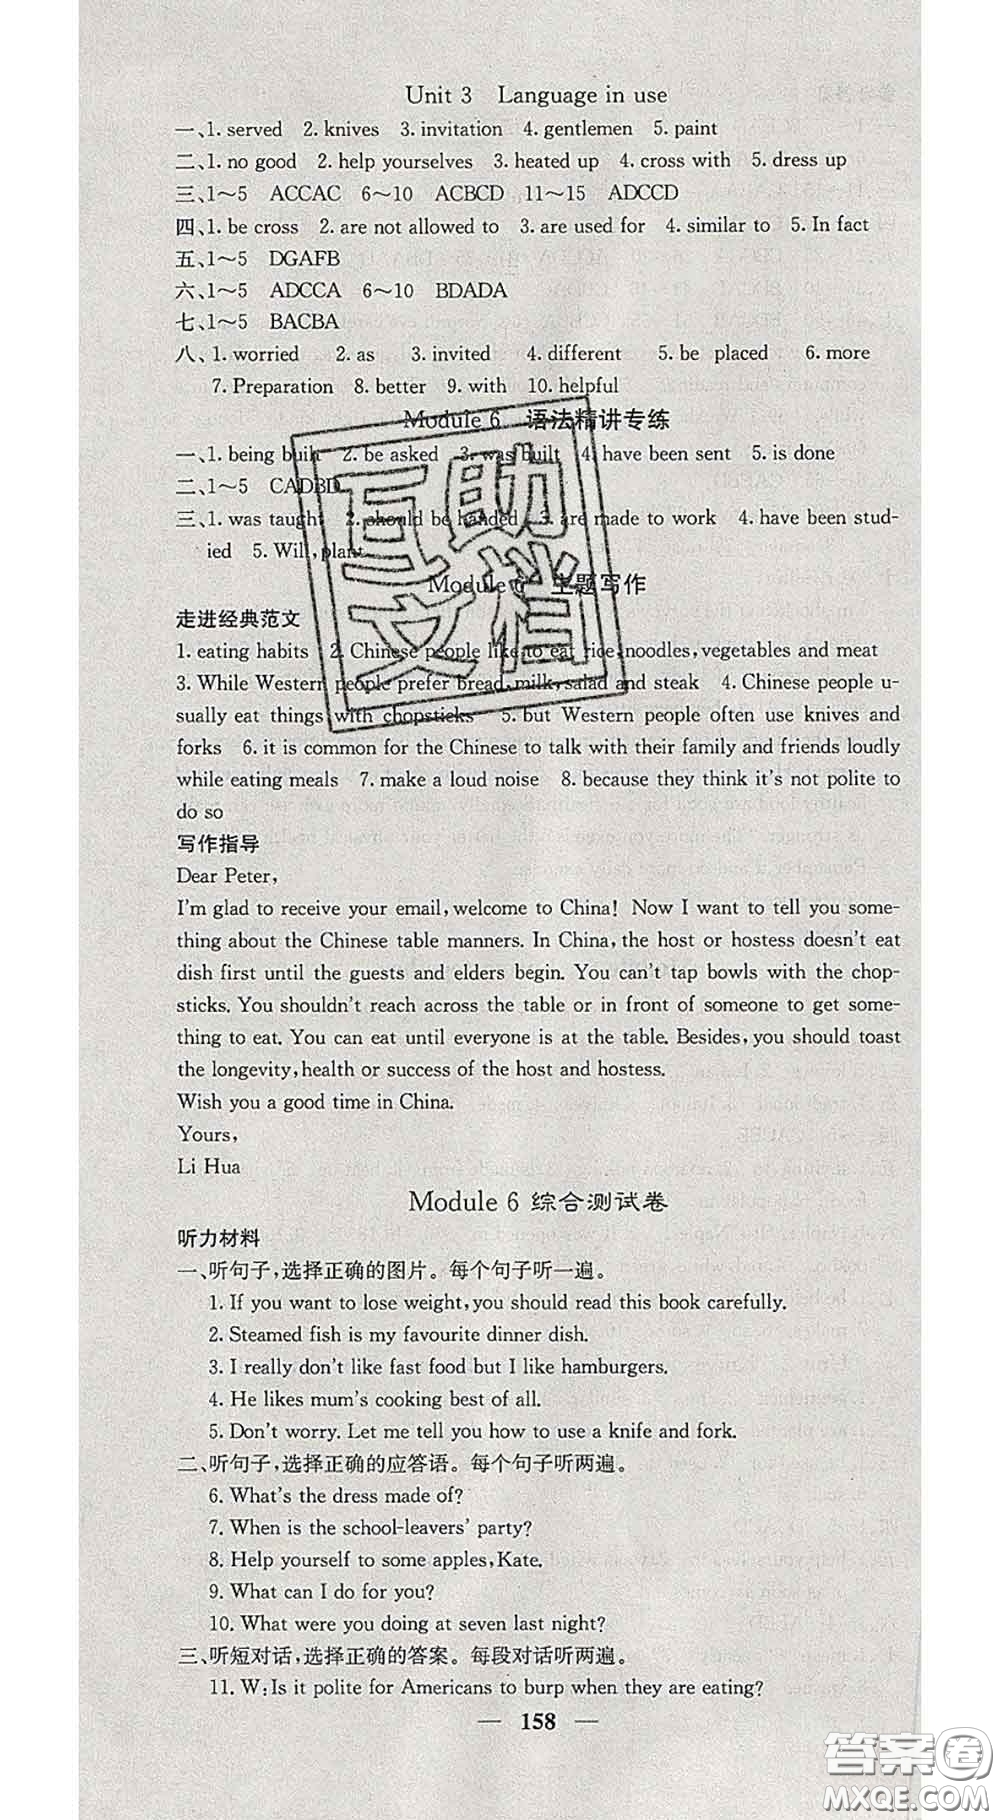 Unit 3 Language in use
一、1. served 2. knives 3. invitation 4. gentlemen 5. paint
二、1. no good 2. help yourselves 3. heated up 4. cross with 5. dress up
三、1～5 ACCAC 6～10 ACBCD 11～15 ADCCD
四、1. be cross 2. are not allowed to 3. are used for 4. similar to 5. In fact
五、1～5 DGAFB
六、1～5 ADCCA 6～10 BDADA
七、1～5 BACBA
八、1. worried 2. as 3. invited 4. different 5. be placed 6. more
7. Preparation 8. better 9. with 10. helpful
Module 6 语法精讲专练
一、1. being built 2. be asked 3. was built 4. have been sent 5. is done
二、1～5 CADBD
三、1. was taught 2. should be handed 3. are made to work 4. have been stud-
ied 5. Will, plant
Module 6 主题写作
走进经典范文
1. eating habits 2. Chinese people like to eat rice, noodles, vegetables and meat
3. While Western people prefer bread, milk, salad and steak 4. Chinese people u-
sually eat things with chopsticks 5. but Western people often use knives and
forks 6. it is common for the Chinese to talk with their family and friends loudly
while eating meals 7. make a loud noise 8. because they think it's not polite to
do so
写作指导
Dear Peter,
I'm glad to receive your email, welcome to China! Now I want to tell you some-
thing about the Chinese table manners. In China, the host or hostess doesn't eat
dish first until the guests and elders begin. You can't tap bowls with the chop-
sticks. You shouldn't reach across the table or in front of someone to get some-
thing to eat. You can eat until everyone is at the table. Besides, you should toast
the longevity, health or success of the host and hostess.
Wish you a good time in China.
Yours,
Li Hua
Module 6 综合测试卷
听力材料
一、听句子，选择正确的图片。每个句子听一遍。
1. If you want to lose weight, you should read this book carefully.
2. Steamed fish is my favourite dinner dish.
3. I really don't like fast food but I like hamburgers.
4. He likes mum's cooking best of all.
5. Don't worry. Let me tell you how to use a knife and fork.
二、听句子，选择正确的应答语。每个句子听两遍。
6. What's the dress made of?
7. When is the school-leavers' party?
8. Help yourself to some apples, Kate.
9. What can I do for you?
10. What were you doing at seven last night?
三、听短对话，选择正确的答案。每段对话听两遍。
11. W: Is it polite for Americans to burp when they are eating?
— 158 —
互助
文档
答案圈
MXQE.COM